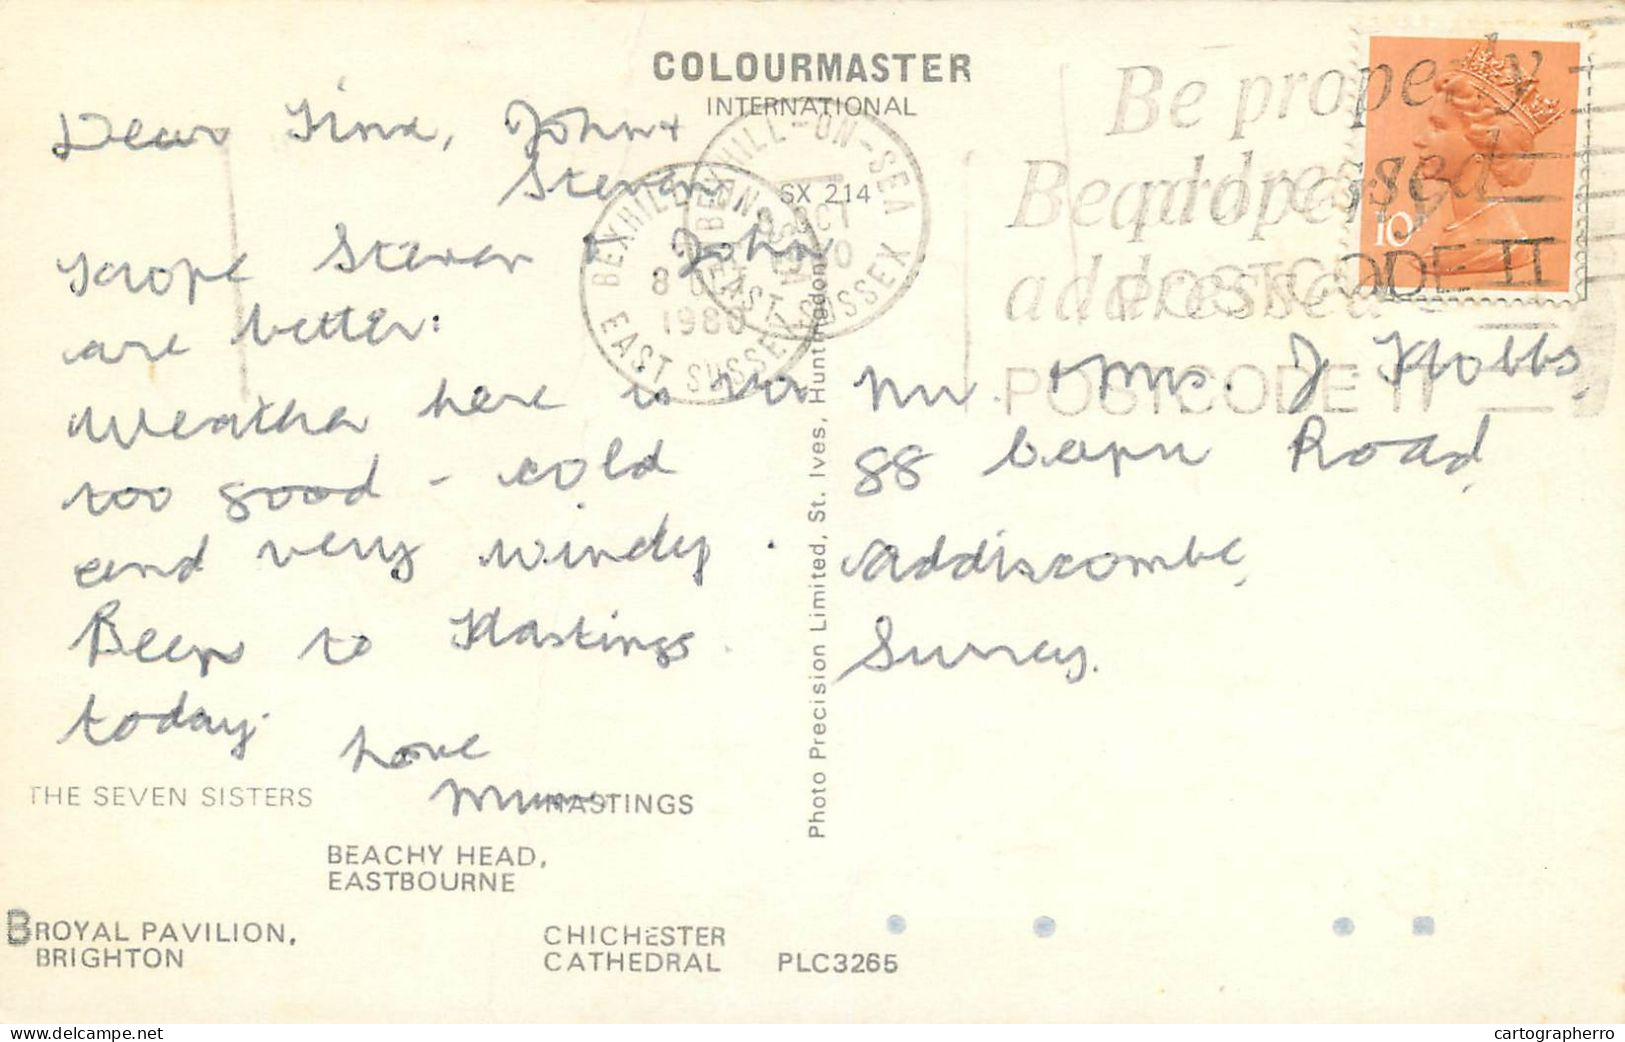 COLOURMASTER
INTERNATIONAL
SX 214
Dear Tina, John +
Steven
Hope Steven + John
are better.
Weather here is not
too good - cold
and very windy.
Been to Hastings
today.
Love
Mum
Be properly
addressed
POSTCODE IT
Be properly
addressed
POSTCODE IT
BEXHILL-ON-SEA
8 OCT
1980
EAST SUSSEX
BEXHILL-ON-SEA
OCT
EAST SUSSEX
10
Mr + Mrs. J Hobbs,
88 Road,
Addiscombe,
Surrey.
Photo Precision Limited, St. Ives, Huntingdon
THE SEVEN SISTERS
HASTINGS
BEACHY HEAD,
EASTBOURNE
B
ROYAL PAVILION,
BRIGHTON
CHICHESTER
CATHEDRAL
PLC3265
www.delcampe.net
cartographerro